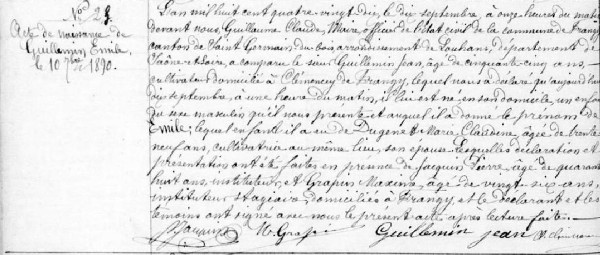 N° 23.
Acte de naissance de
Guillemin Emile,
le 10 7bre 1890.
L'an mil huit cent quatre vingt dix, le dix septembre, à onze heures du matin
devant nous, Guillaume Claude, Maire, officier de l'état civil de la commune de Frangy
canton de Saint Germain du bois arrondissement de Louhans, département de
Saône et Loire, a comparu le sieur Guillemin Jean, âgé de cinquante cinq ans,
cultivateur domicilié à Clémencey de Frangy, lequel nous a déclaré qu'aujourd'hui
dix septembre, à une heure du matin, il lui est né en son domicile, un enfant
du sexe masculin qu'il nous présente et auquel il a donné le prénom de
Emile; lequel enfant il a eu de Dugenet Marie Claudine, âgée de trente
neuf ans, cultivatrice au même lieu, son épouse. Lesquelles déclaration et
présentation ont été faites en présence de Jacquin Pierre, âgé de quarante
huit ans, instituteur, et Grapin Maxime, âgé de vingt six ans,
instituteur stagiaire, domiciliés à Frangy, et le déclarant et les
témoins ont signé avec nous le présent acte après lecture faite.
Jacquin M. Grapin Guillemin Jean